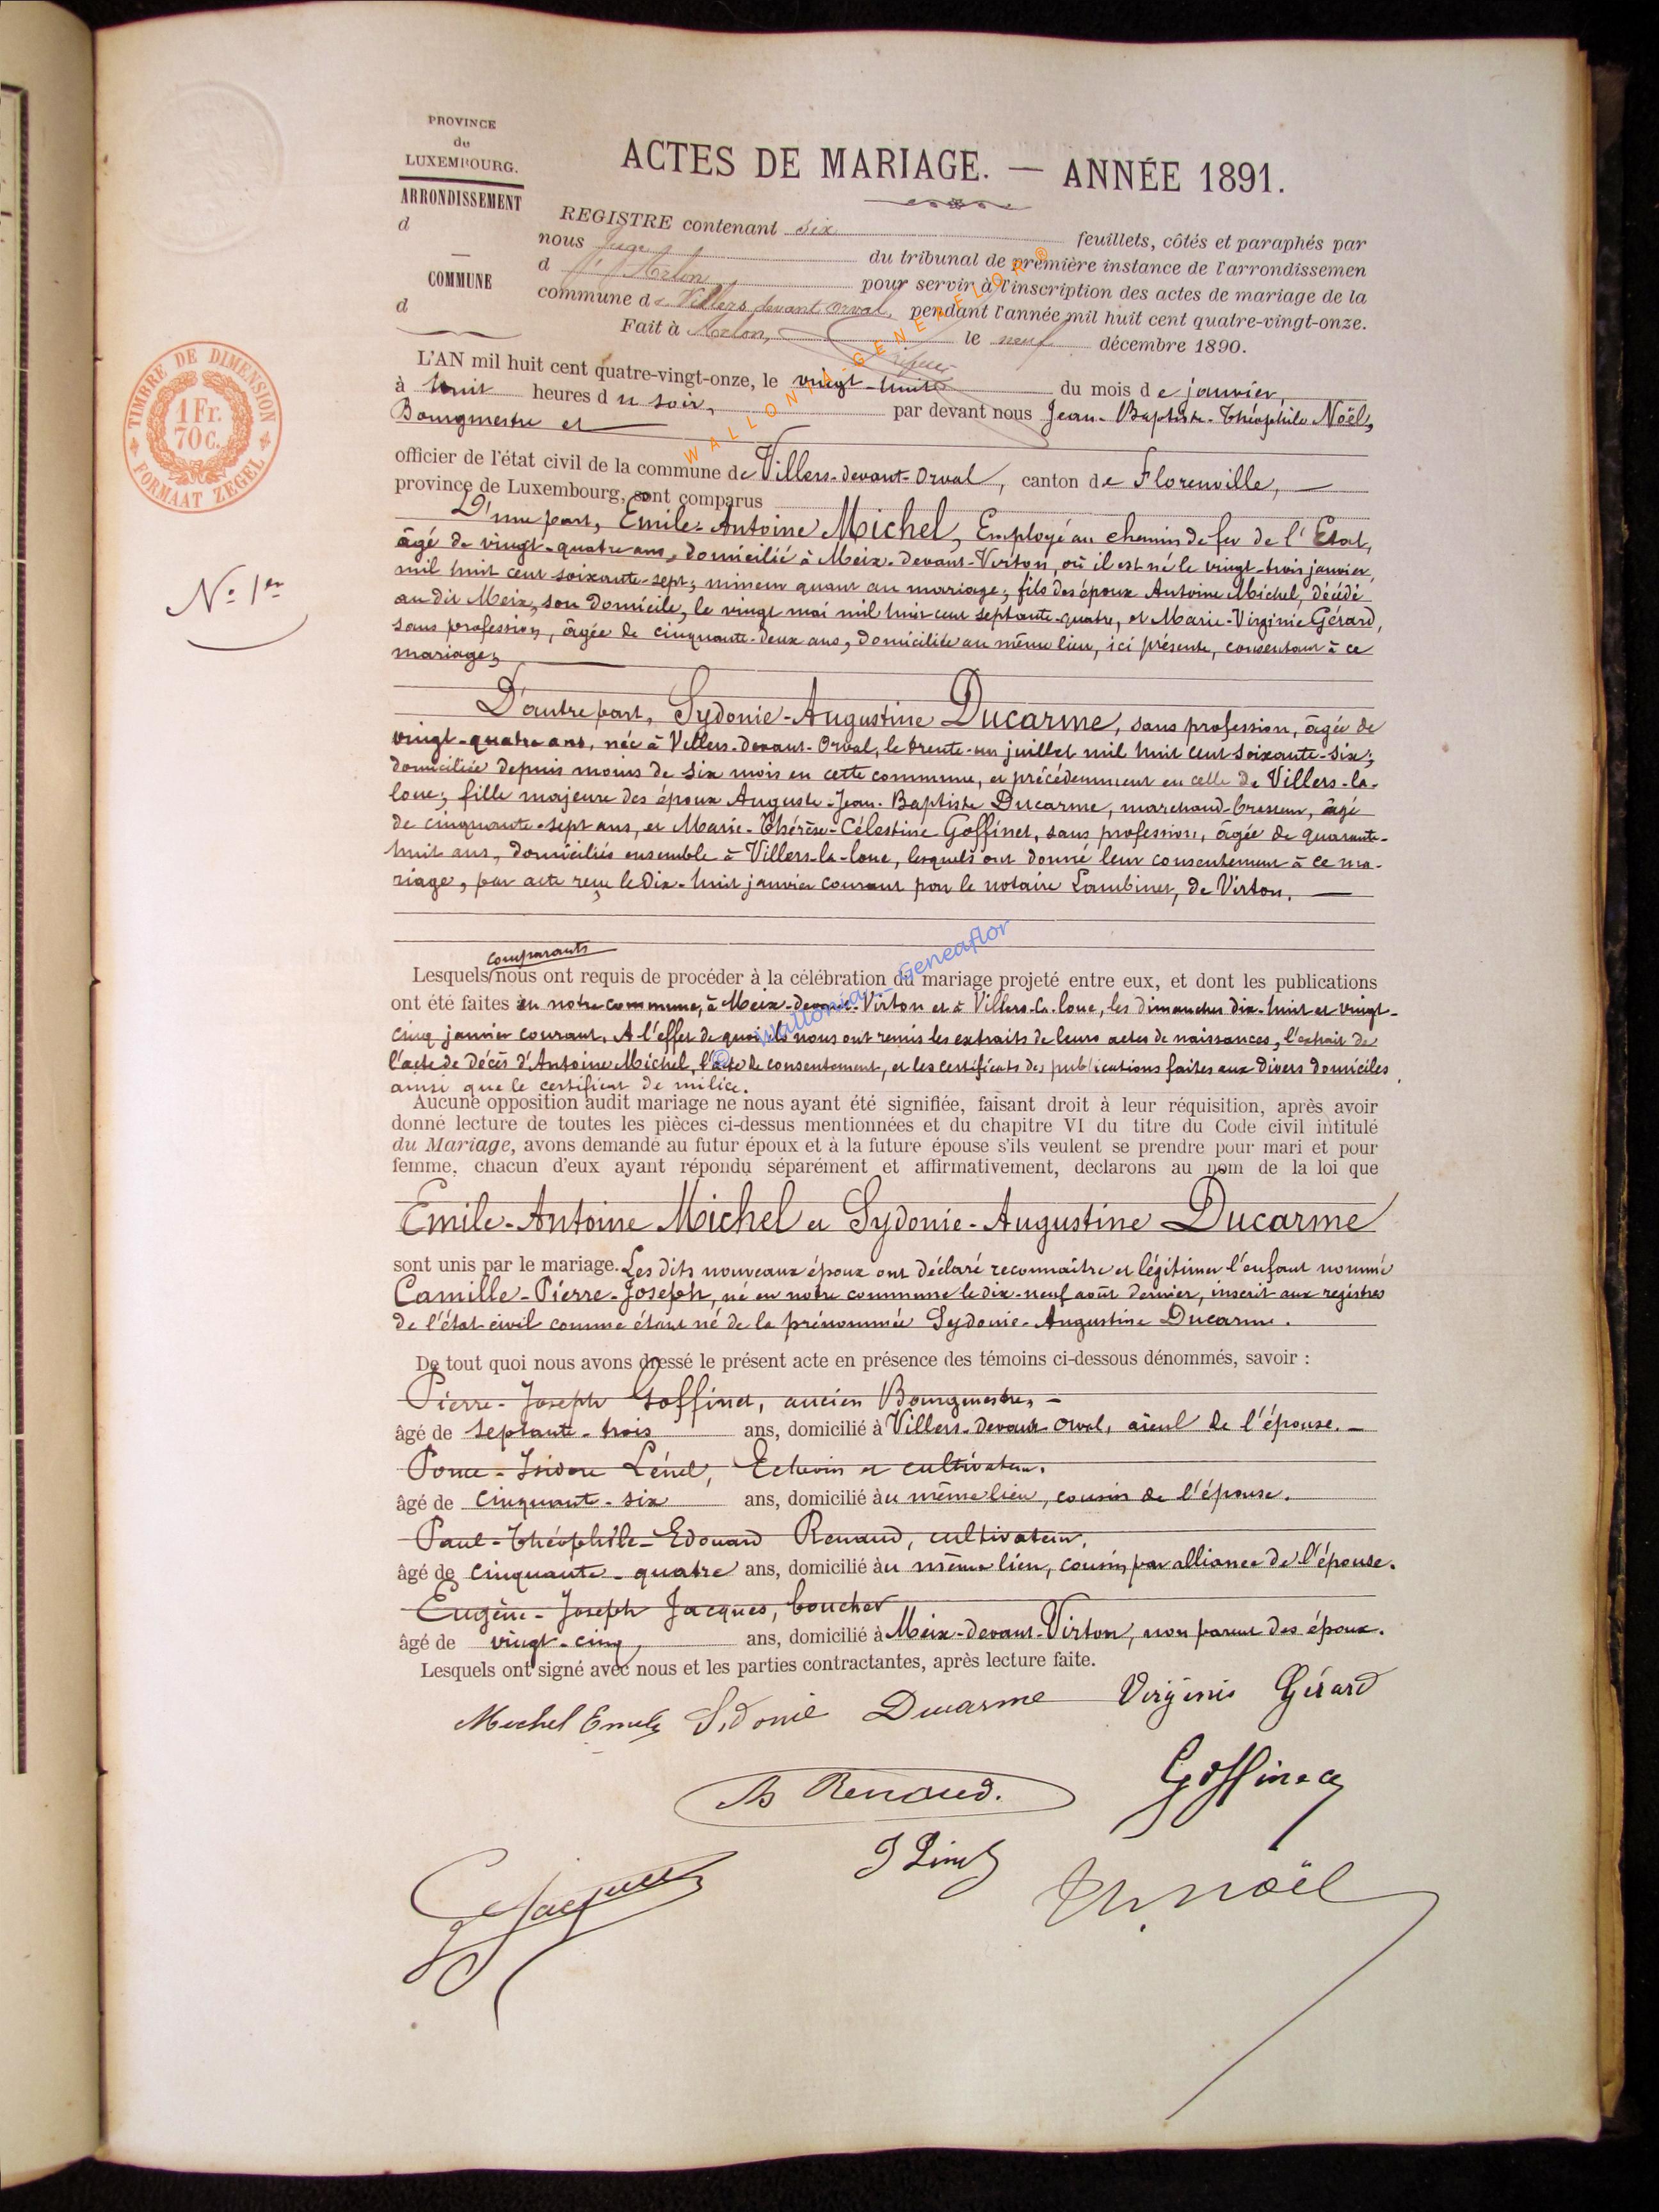 PROVINCE
de
LUXEMBOURG.
ARRONDISSEMENT
d
COMMUNE
d
ACTES DE MARIAGE. — ANNÉE 1891.
REGISTRE contenant six feuillets, côtés et paraphés par
nous Juge du tribunal de première instance de l'arrondissemen
d'Arlon pour servir à l'inscription des actes de mariage de la
commune de Villers devant Orval, pendant l'année mil huit cent quatre-vingt-onze.
Fait à Arlon, le neuf décembre 1890.
TIMBRE DE DIMENSION
1 Fr.
70 c.
FORMAAT ZEGEL
N° 1er
L'AN mil huit cent quatre-vingt-onze, le vingt-huit du mois de janvier,
à huit heures du soir, par devant nous Jean-Baptiste-Théophile Noël,
Bourgmestre et
officier de l'état civil de la commune de Villers-devant-Orval, canton de Florenville,
province de Luxembourg, sont comparus
D'une part, Emile-Antoine Michel, Employé au chemin de fer de l'Etat,
âgé de vingt-quatre ans, domicilié à Meix-devant-Virton, où il est né le vingt-trois janvier
mil huit cent soixante-sept; mineur quant au mariage; fils des époux Antoine Michel, décédé
au dit Meix, son domicile, le vingt mai mil huit cent septante-quatre, et Marie-Virginie Gérard,
sans profession, âgée de cinquante-deux ans, domiciliée au même lieu, ici présente, consentant à ce
mariage;
D'autre part, Sydonie-Augustine Ducarme, sans profession, âgée de
vingt-quatre ans, née à Villers-devant-Orval, le trente-un juillet mil huit cent soixante-six;
domiciliée depuis moins de six mois en cette commune, et précédemment en celle de Villers-la-
loue; fille majeure des époux Auguste-Jean-Baptiste Ducarme, marchand-brasseur, âgé
de cinquante-sept ans, et Marie-Thérèse-Célestine Goffinet, sans profession, âgée de quarante-
huit ans, domiciliés ensemble à Villers-la-loue, lesquels ont donné leur consentement à ce ma-
riage, par acte reçu le dix-huit janvier courant par le notaire Lambinet, de Virton.
comparants
Lesquels nous ont requis de procéder à la célébration du mariage projeté entre eux, et dont les publications
ont été faites en notre commune, à Meix-devant-Virton et à Villers-la-loue, les dimanches dix-huit et vingt-
cinq janvier courant. A l'effet de quoi ils nous ont remis les extraits de leurs actes de naissances, l'extrait de
l'acte de décès d'Antoine Michel, l'acte de consentement, et les certificats des publications faites aux divers domiciles
ainsi que le certificat de milice.
Aucune opposition audit mariage ne nous ayant été signifiée, faisant droit à leur réquisition, après avoir
donné lecture de toutes les pièces ci-dessus mentionnées et du chapitre VI du titre du Code civil intitulé
du Mariage, avons demandé au futur époux et à la future épouse s'ils veulent se prendre pour mari et pour
femme, chacun d'eux ayant répondu séparément et affirmativement, déclarons au nom de la loi que
Emile-Antoine Michel et Sydonie-Augustine Ducarme
sont unis par le mariage. Les dits nouveaux époux ont déclaré reconnaître et légitimer l'enfant nommé
Camille-Pierre-Joseph, né en notre commune le dix-neuf août dernier, inscrit aux registres
de l'état civil comme étant né de la prénommée Sydonie-Augustine Ducarme.
De tout quoi nous avons dressé le présent acte en présence des témoins ci-dessous dénommés, savoir :
Pierre-Joseph Goffinet, ancien Bourgmestre,
âgé de septante-trois ans, domicilié à Villers-devant-Orval, aïeul de l'épouse.
Isidore Echevin et cultivateur.
âgé de cinquante-six ans, domicilié au même lieu, cousin de l'épouse.
Paul-Théophile-Edouard Renaud, cultivateur,
âgé de cinquante-quatre ans, domicilié au même lieu, cousin par alliance de l'épouse.
Eugène-Joseph Jacques, boucher
âgé de vingt-cinq, ans, domicilié à Meix-devant-Virton, non parent des époux.
Lesquels ont signé avec nous et les parties contractantes, après lecture faite.
Michel Emile Sidonie Ducarme Virginie Gérard
Renaud. Goffinet
Jacques
Th. Noël
WALLONIA-GENEAFLOR®
© Wallonia - Geneaflor